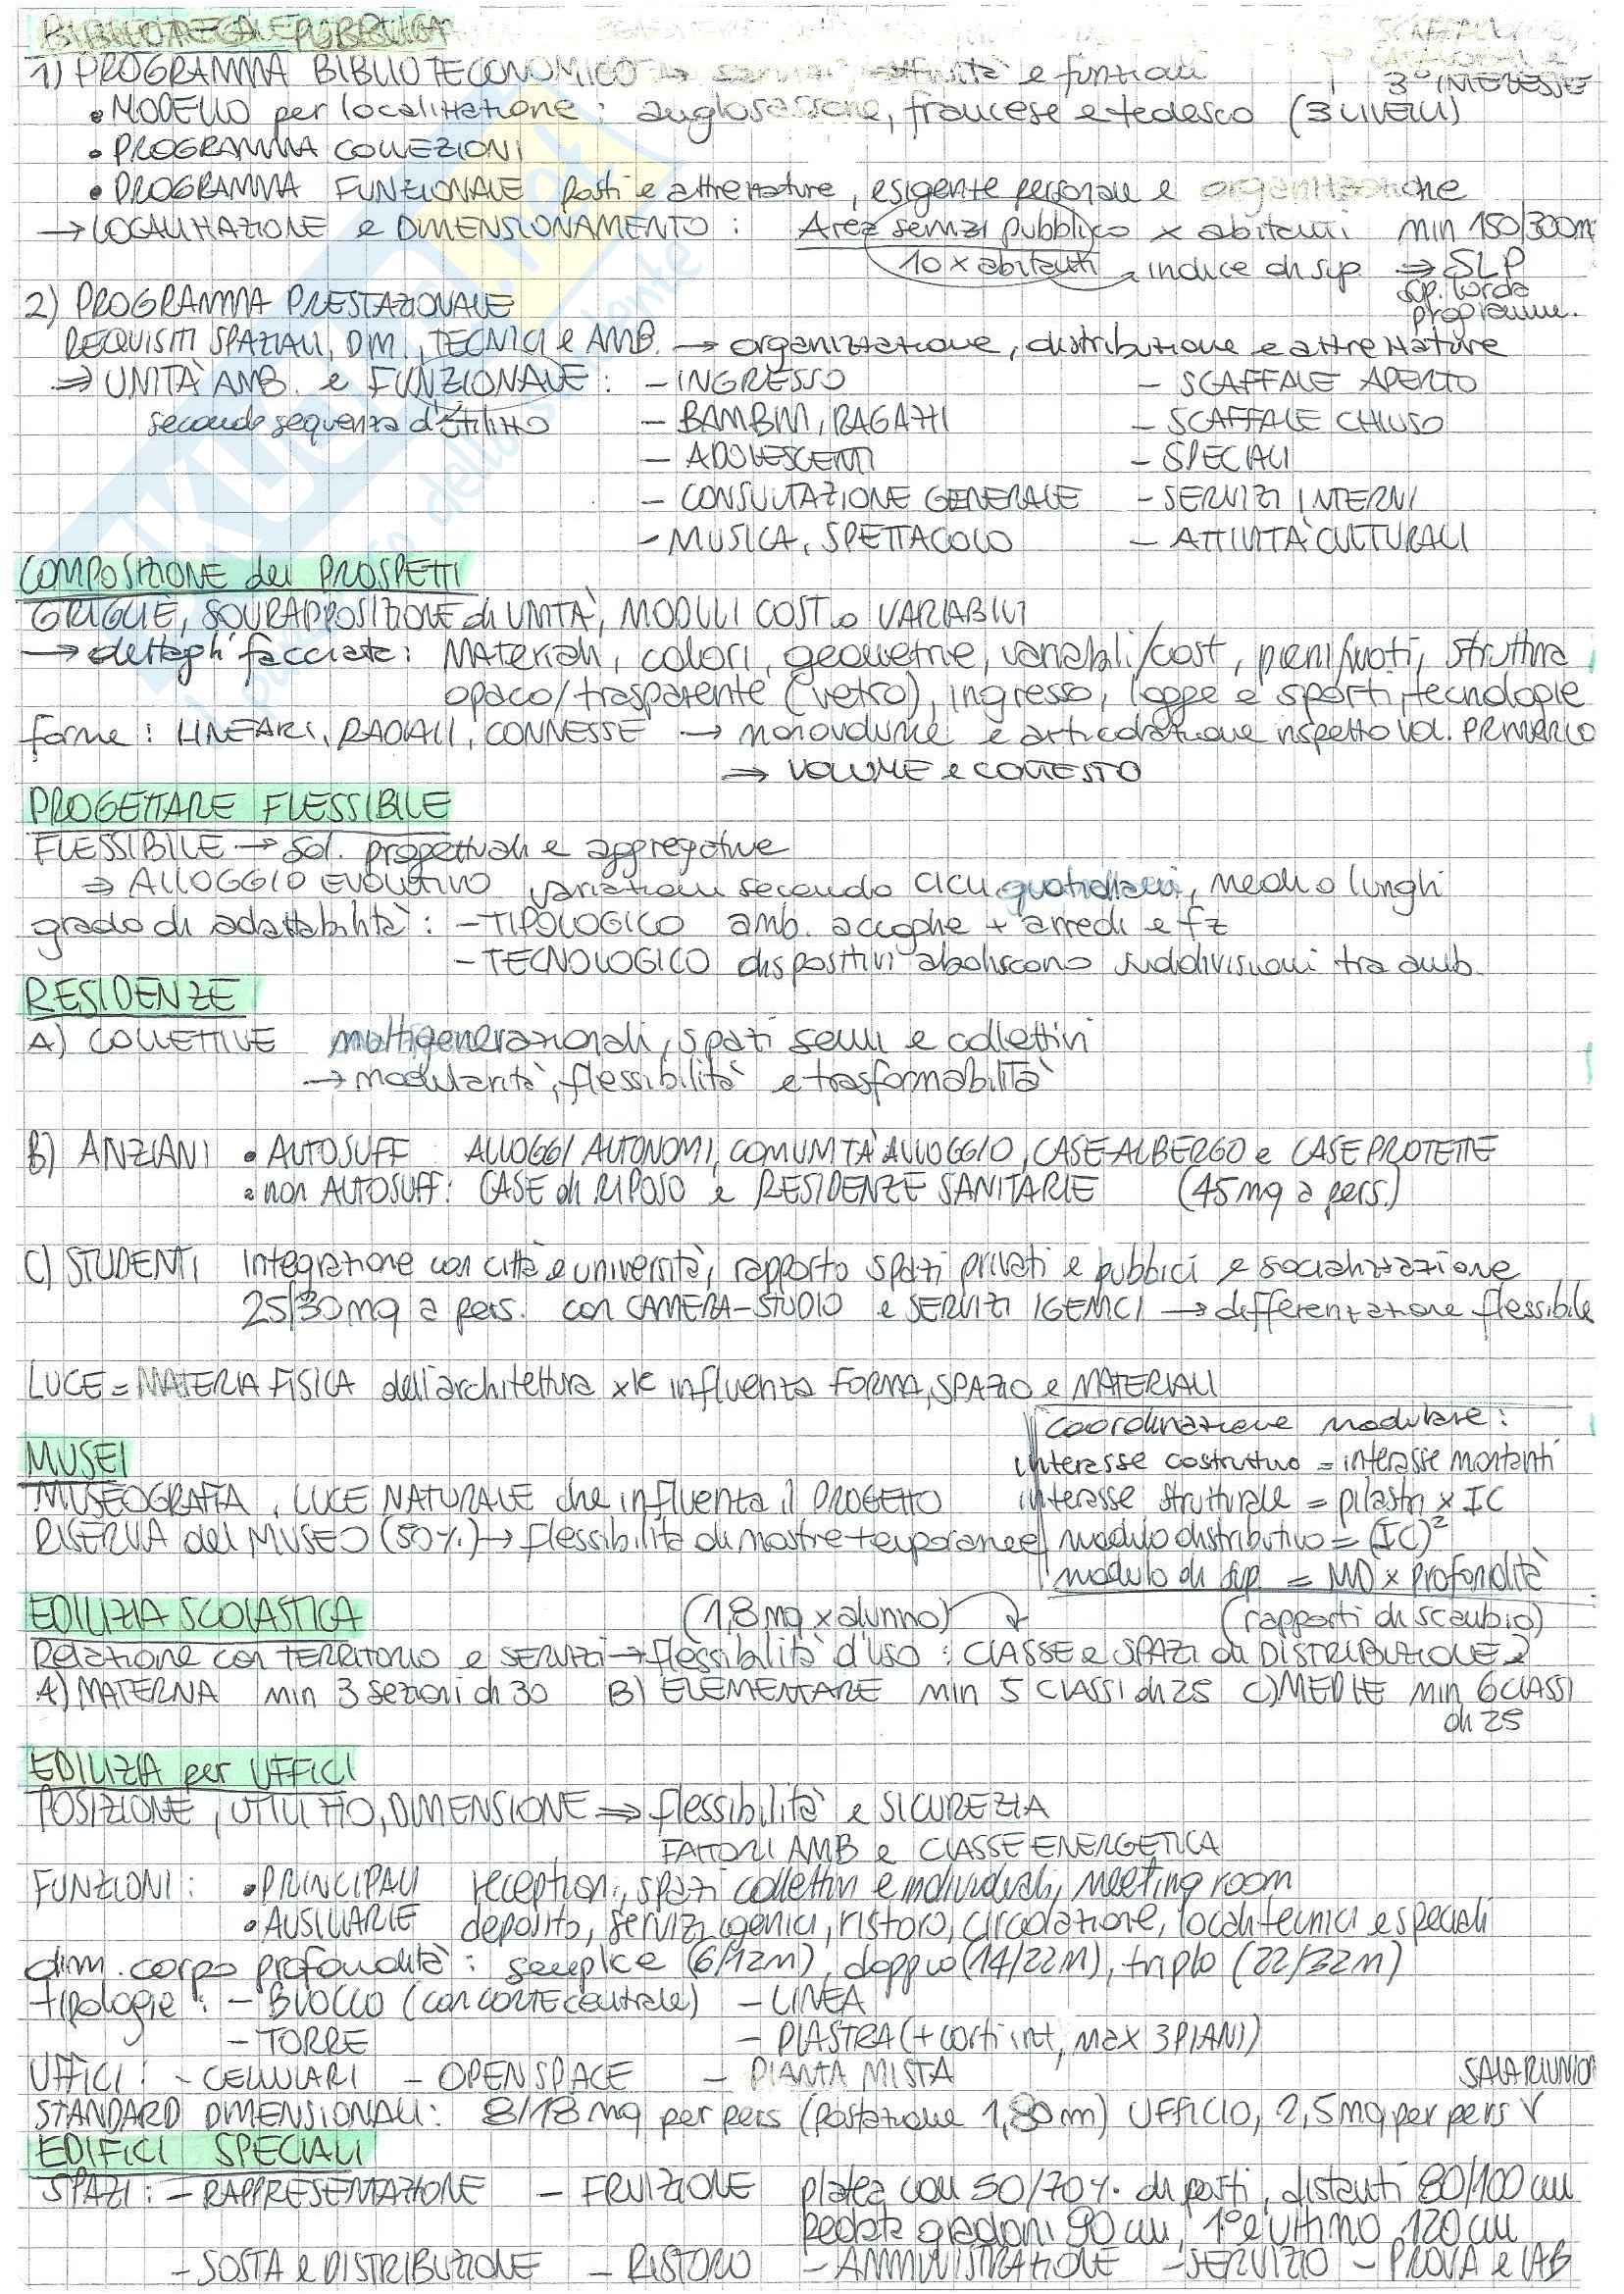 BIBLIOTECA PUBBLICA
SCAFFALI
1) PROGRAMMA BIBLIOTECONOMICO → servizi attività e funzioni
3° INTERESSE
• MODELLO per localizzazione : anglosassone, francese e tedesco (3 LIVELLI)
• PROGRAMMA COLLEZIONI
• PROGRAMMA FUNZIONALE posti e attrezzature, esigenze personale e organizzazione
→ LOCALIZZAZIONE e DIMENSIONAMENTO : Area servizi pubblico x abitanti min 150/300m
10 x abitanti → indice di sup. ⇒ SLP
sup. lorda
programm.
2) PROGRAMMA PRESTAZIONALE
REQUISITI SPAZIALI, DIM., TECNICI e AMB. → organizzazione, distribuzione e attrezzature
⇒ UNITÀ AMB. e FUNZIONALE : - INGRESSO - SCAFFALE APERTO
secondo sequenza d'utilizzo - BAMBINI, RAGAZZI - SCAFFALE CHIUSO
- ADOLESCENTI - SPECIALI
- CONSULTAZIONE GENERALE - SERVIZI INTERNI
- MUSICA, SPETTACOLO - ATTIVITÀ CULTURALI
COMPOSIZIONE dei PROSPETTI
GRIGLIE, SOVRAPPOSIZIONE di UNITÀ, MODULI COST o VARIABILI
→ dettagli facciata : Materiali, colori, geometrie, variabili/cost, pieni/vuoti, struttura
opaco/trasparente (vetro), ingresso, logge e sporti, tecnologie
forme : LINEARI, RADIALI, CONNESSE → monovolume e articolazione rispetto vol. PRIMARIO
⇒ VOLUME e CONTESTO
PROGETTARE FLESSIBILE
FLESSIBILE → sol. progettuali e aggregative
⇒ ALLOGGIO EVOLUTIVO variazioni secondo cicli quotidiani, medi o lunghi
grado di adattabilità : - TIPOLOGICO amb. accoglie + arredi e fz
- TECNOLOGICO dispositivi aboliscono suddivisioni tra amb.
RESIDENZE
A) COLLETTIVE multigenerazionali, spazi semi e collettivi
→ modularità, flessibilità e trasformabilità
B) ANZIANI • AUTOSUFF ALLOGGI AUTONOMI, COMUNITÀ ALLOGGIO, CASE-ALBERGO e CASE PROTETTE
• non AUTOSUFF : CASE di RIPOSO e RESIDENZE SANITARIE (45 mq a pers.)
C) STUDENTI Integrazione con città e università, rapporto spazi privati e pubblici e socializzazione
25/30 mq a pers. con CAMERA-STUDIO e SERVIZI IGENICI → differenziazione flessibile
LUCE = MATERIA FISICA dell'architettura xk influenza FORMA, SPAZIO e MATERIALI
Coordinazione modulare :
MUSEI
interasse costruttivo = interasse montanti
MUSEOGRAFIA, LUCE NATURALE che influenza il PROGETTO interasse strutturale = pilastri x IC
RISERVA del MUSEO (50%) → flessibilità di mostre temporanee modulo distributivo = (IC)²
modulo di sup = MD x profondità
EDILIZIA SCOLASTICA (1,8 mq x alunno) (rapporti di scambio)
Relazione con TERRITORIO e SERVIZI → flessibilità d'uso : CLASSE e SPAZI di DISTRIBUZIONE
A) MATERNA min 3 sezioni di 30 B) ELEMENTARE min 5 CLASSI di 25 C) MEDIE min 6 CLASSI
di 25
EDILIZIA per UFFICI
POSIZIONE, UTILIZZO, DIMENSIONE ⇒ flessibilità e SICUREZZA
FATTORI AMB e CLASSE ENERGETICA
FUNZIONI : • PRINCIPALI reception, spazi collettivi e individuali, meeting room
• AUSILIARIE deposito, servizi igenici, ristoro, circolazione, locali tecnici e speciali
dim. corpo profondità : semplice (6/12m), doppio (14/22m), triplo (22/32m)
tipologie : - BLOCCO (con CORTE centrale) - LINEA
- TORRE - PIASTRA (+ corti int, max 3 PIANI)
UFFICI : - CELLULARI - OPEN SPACE - PIANTA MISTA SALA RIUNIO
STANDARD DIMENSIONALI : 8/18 mq per pers (postazione 1,80 m) UFFICIO, 2,5 mq per pers
EDIFICI SPECIALI
SPAZI : - RAPPRESENTAZIONE - FRUIZIONE platea con 50/70% di posti, distanti 80/100 cm
pedate gradoni 90 cm, 1° e ultimo 120 cm
- SOSTA e DISTRIBUZIONE - RISTORO - AMMINISTRAZIONE - SERVIZIO - PROVA e LAB